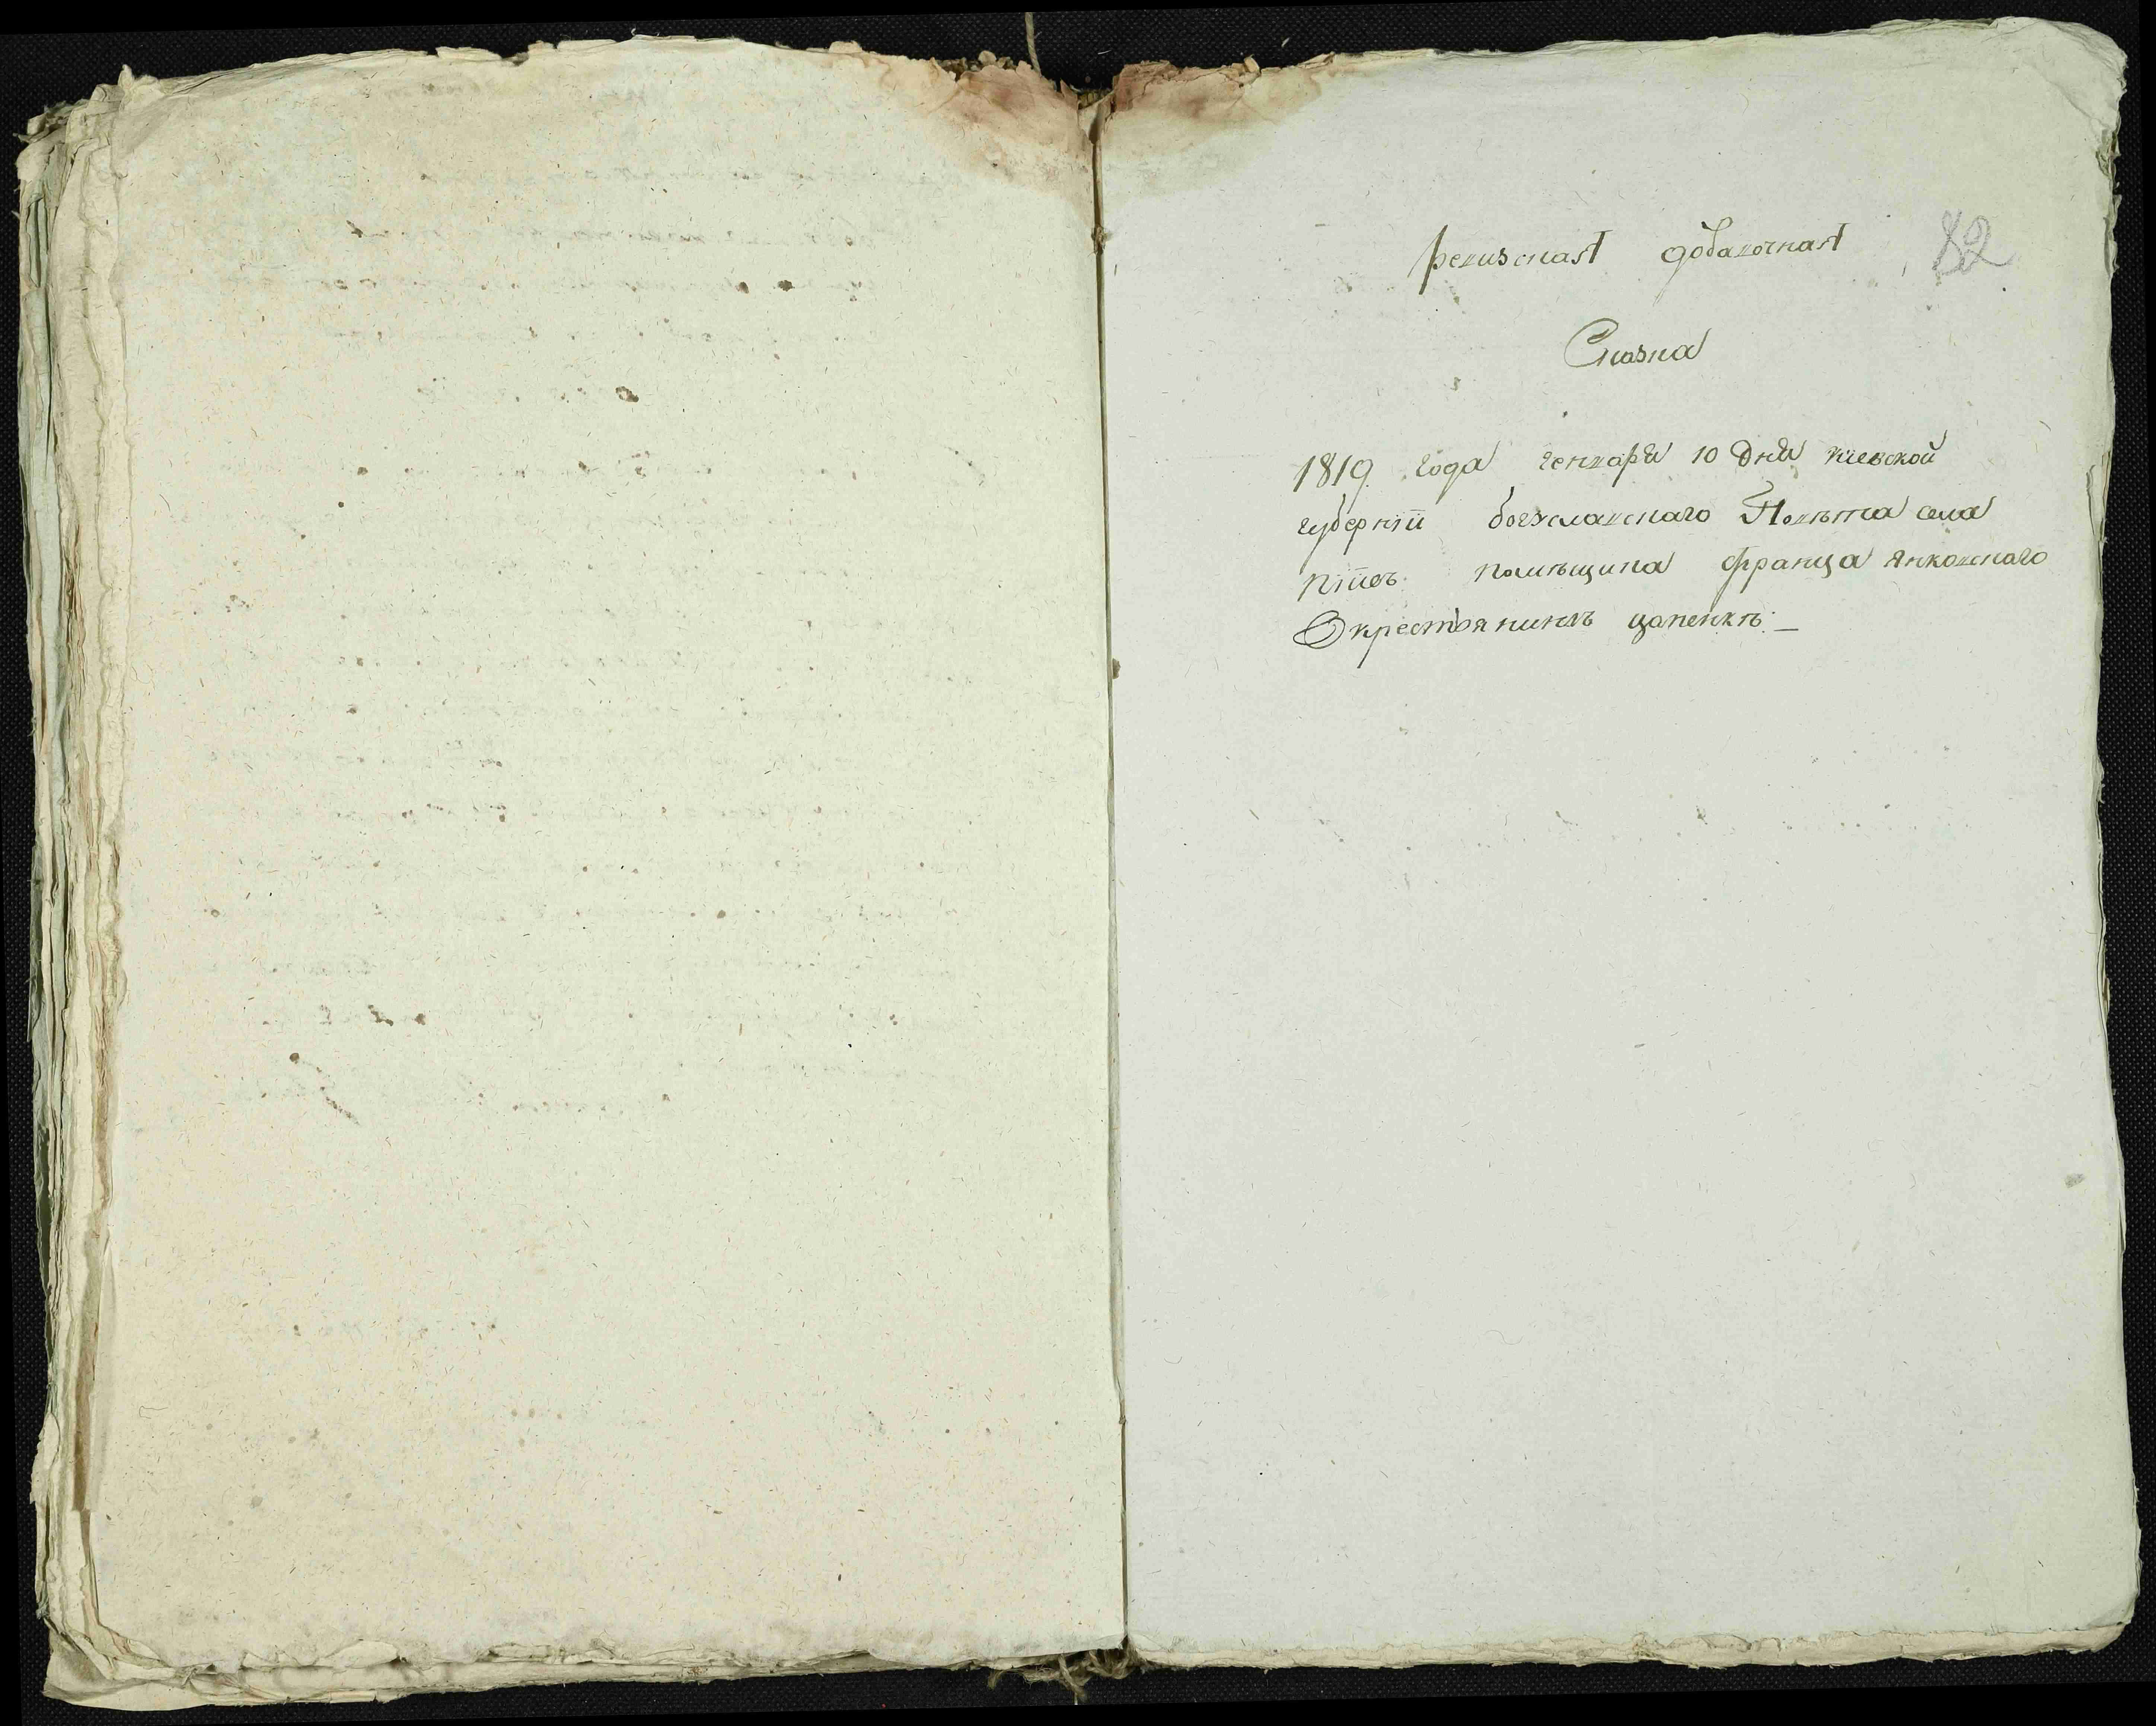 ревизская добавочная 82
Сказка
1819 года генваря 10 дня киевской
губернїи богуславскаго Повѣта села
помѣщика Франца Янковскаго
О крестьянинѣ цапенкѣ: —